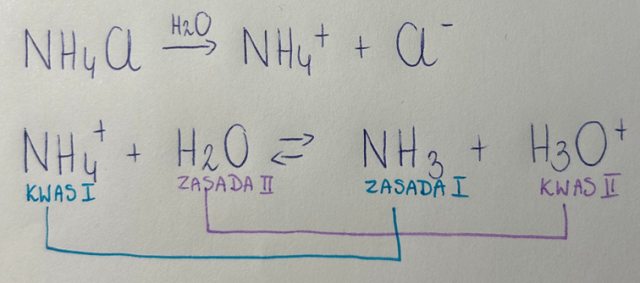 NH₄Cl H₂O→ NH₄⁺ + Cl⁻
NH₄⁺ + H₂O ⇄ NH₃ + H₃O⁺
KWAS I ZASADA II ZASADA I KWAS II